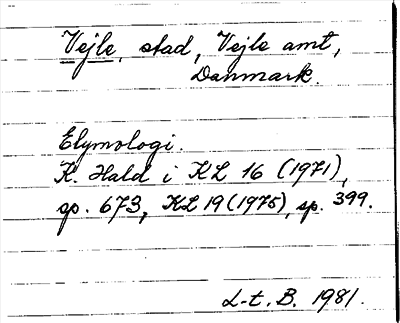 Vejle, stad, Vejle amt,
Danmark.
Etymologi.
K. Hald i KL 16 (1971),
sp. 673, KL 19 (1975), sp. 399.
L-t. B. 1981.